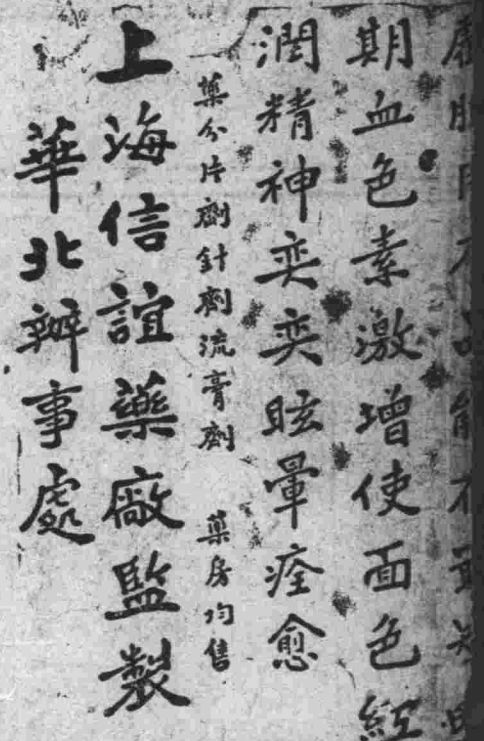 期血色素激增使面色紅
潤精神奕奕眩暈痊愈
藥分片劑針劑流膏劑　藥房均售
上海信誼藥廠監製
華北辦事處